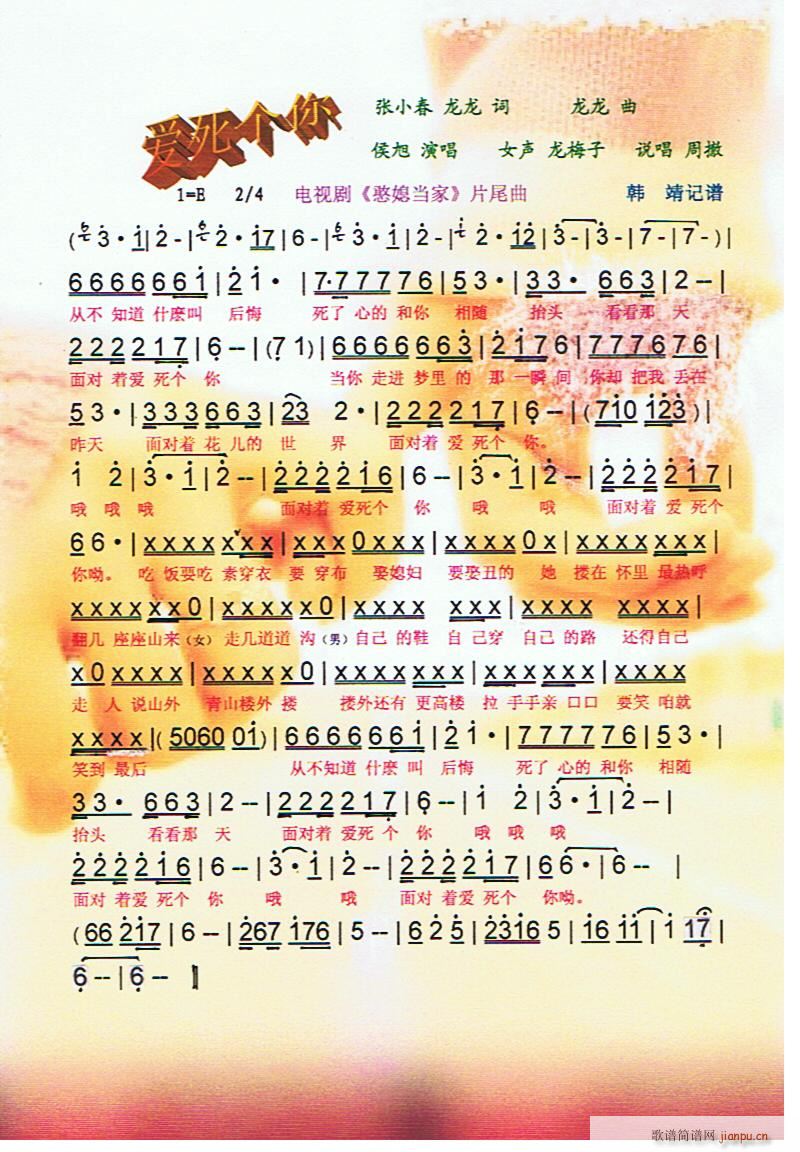 爱死个你
张小春 龙龙 词 龙龙 曲
侯旭 演唱 女声 龙梅子 说唱 周撤
1=E 2/4 电视剧《憨媳当家》片尾曲 韩 靖记谱
3·1|2-| 2·17|6-| 3·1|2-| 2·12|3-|3-|7-|7-)|
6666661|21·|7·77776|53·|33·663|2--|
从不 知道 什麽叫 后悔 死了 心的 和你 相随 抬头 看看那 天
2222217|6--|(71)|6666663|2176|777676|
面对 着爱 死个 你 当你 走进 梦里 的 那 一瞬 间 你却 把我 丢在
53·|333663|23 2·|2222217|6--|(710 123)|
昨天 面对着 花 儿的 世 界 面对着 爱 死个 你。
1 2|3·1|2--|2222216|6--|3·1|2--|2222217|
哦 哦 哦 面对着 爱死个 你 哦 哦 面对着 爱死个
66·|xxxx xxx|xxx0xxxx|xxxx0x|xxxx xxx|
你呦。 吃 饭要吃 素穿衣 要 穿布 娶媳妇 要娶丑的 她 搂在 怀里 最热呼
xxxx xx0|xxxx x0|xxxx xxx|xxxx xxxx|
翻几 座座山来(女) 走几道道 沟(男)自己 的鞋 自 己穿 自己 的路 还得自己
x0 xxxx|xxxx x0|xxxx xxx|xxxx xxxx
走 人 说山外 青山楼外 搂 搂外还有 更高楼 拉 手手亲 口口 要笑 咱就
xxxx|(5060 01)|6666661|21·|777776|53·|
笑到 最后 从不知道 什麽 叫 后悔 死了 心的 和你 相随
33·663|2--|2222217|6--|1 2|3·1|2--|
抬头 看看那 天 面对着 爱死 个 你 哦 哦 哦
2222216|6--|3·1|2--|2222217|66·|6-- |
面对 着爱 死个 你 哦 哦 面对 着爱 死个 你呦。
(66 217|6--|267 176|5--|6 2 5|23165|16 11|1 17|
6--|6--
歌谱简谱网 jianpu.cn